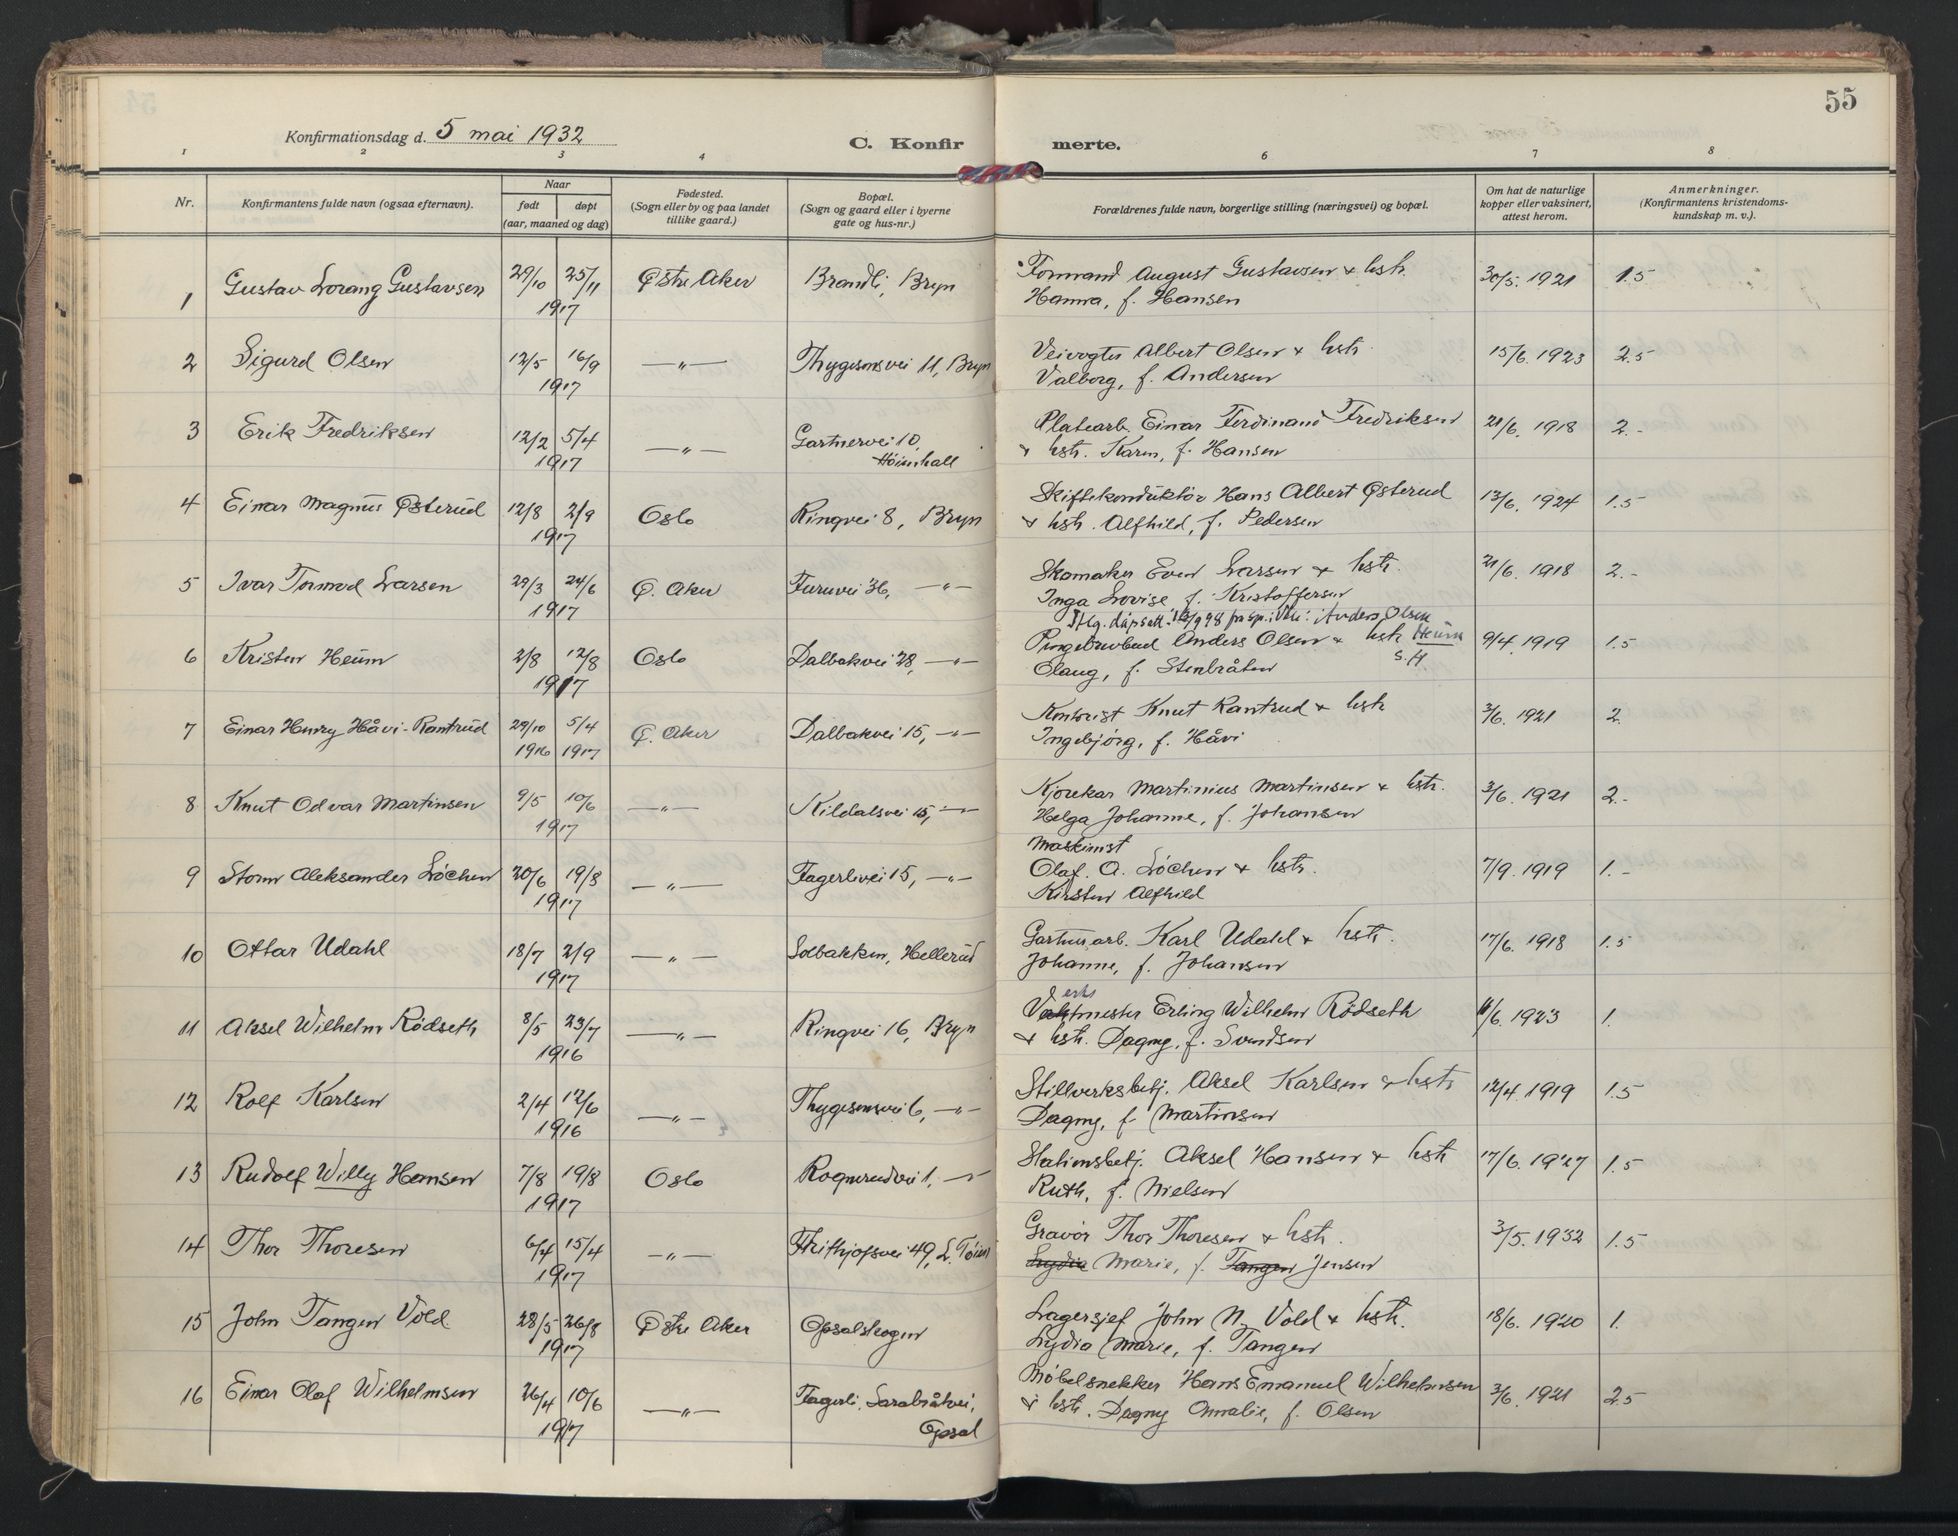 55
Konfirmationsdag d. 5 mai 1932
C. Konfirmerte.
1 2 3 4 5 6 7 8
Nr.
Konfirmantens fulde navn (ogsaa efternavn).
Naar
født døpt
(aar, maaned og dag)
Fødested.
(Sogn eller by og paa landet
tillike gaard.)
Bopæl.
(Sogn og gaard eller i byerne
gate og hus-nr.)
Forældrenes fulde navn, borgerlige stilling (næringsvei) og bopæl.
Om hat de naturlige
kopper eller vaksinert,
attest herom.
Anmerkninger.
(Konfirmantens kristendoms-
kundskap m. v.).
1 Gustav Lorang Gustavsen 29/10 25/11 1917 Østre Aker Brandli, Bryn Formand August Gustavsen & hstr. 30/5. 1921 1.5
Hanna, f. Hansen
2 Sigurd Olsen 12/5 16/9 1917 —"— Thygesonsvei 11, Bryn Veivogter Albert Olsen & hstr. 15/6. 1923 2.5
Valborg, f. Andersen
3 Erik Fredriksen 12/2 5/4 1917 —"— Gartnervei 10, Høienhall Platearb. Einar Ferdinand Fredriksen 21/6. 1918 2.-
& hstr. Karen, f. Hansen
4 Einar Magnus Østerud 12/8 2/9 1917 Oslo Ringvei 8, Bryn Skiftekonduktør Hans Albert Østerud 13/6. 1924 1.5
& hstr. Alfhild, f. Pedersen
5 Ivar Tormod Larsen 29/3 24/6 1917 Ø. Aker Furuvei 36, —"— Skomaker Even Larsen & hstr. 21/6. 1918 2.-
Inga Lovise f. Kristoffersen
Iflg. dåpsatt. : Anders Olsen
6 Kristen Heum 2/8 12/8 1917 Oslo Dalbakvei 28, —"— Pengebrevbud Anders Olsen & hstr. Heum 9/4. 1919 1.5
S.H.
Olaug, f. Stenbråten
7 Einar Henry Håvi-Rantrud 29/10 1916 5/4 1917 Ø. Aker Dalbakvei 15, —"— Kontorist Knut Rantrud & hstr 3/6. 1921 2.
Ingebjørg, f. Håvi
8 Knut Odvar Martinsen 9/5 10/6 1917 —"— Kildalsvei 15, —"— Kjørekar Martinius Martinsen & hstr. 3/6. 1921 2.-
Helga Johanne, f. Johansen
9 Storm Aleksander Løchen 20/6 19/8 1917 —"— Fagerlivei 15, —"— Maskinist
Olaf. A. Løchen & hstr. 7/9. 1919 1.-
Kirsten Alfhild
10 Ottar Udahl 18/7 2/9 1917 —"— Solbakken, Hellerud Gartnerarb. Karl Udahl & hstr. 17/6. 1918 1.5
Johanne, f. Johansen
11 Aksel Wilhelm Rødseth 8/5 23/7 1916 —"— Ringvei 16, Bryn Verksmester Erling Wilhelm Rødseth 11/6. 1923 1.
& hstr. Dagny, f. Svendsen
12 Rolf Karlsen 2/4 12/6 1916 —"— Thygesonsvei 6, —"— Stillverksbetj. Aksel Karlsen & hstr 12/4. 1919 1.5
Dagny, f. Martinsen
13 Rudolf Willy Hansen 7/8 19/8 1917 Oslo Rognerudvei 1, —"— Stationsbetj. Aksel Hansen & hstr 17/6. 1927 1.5
Ruth, f. Nielsen
14 Thor Thoresen 6/4 15/4 1917 —"— Frithjofsvei 49, L. Tøien Gravør Thor Thoresen & hstr. 3/5. 1932 1.5
Lydia Marie, f. Tangen Jensen
15 John Tangen Vold 28/5 26/8 1917 Østre Aker Opsalskogen Lagersjef John N. Vold & hstr. 18/6. 1920 1.
Lydia Marie, f. Tangen
16 Einar Olaf Wilhelmsen 26/4 10/6 1917 —"— Fagerli, Sarabråtvei, Opsal Møbelsnekker Hans Emanuel Wilhelmsen 3/6. 1921 2.5
& hstr. Dagny Amalie, f. Olsen